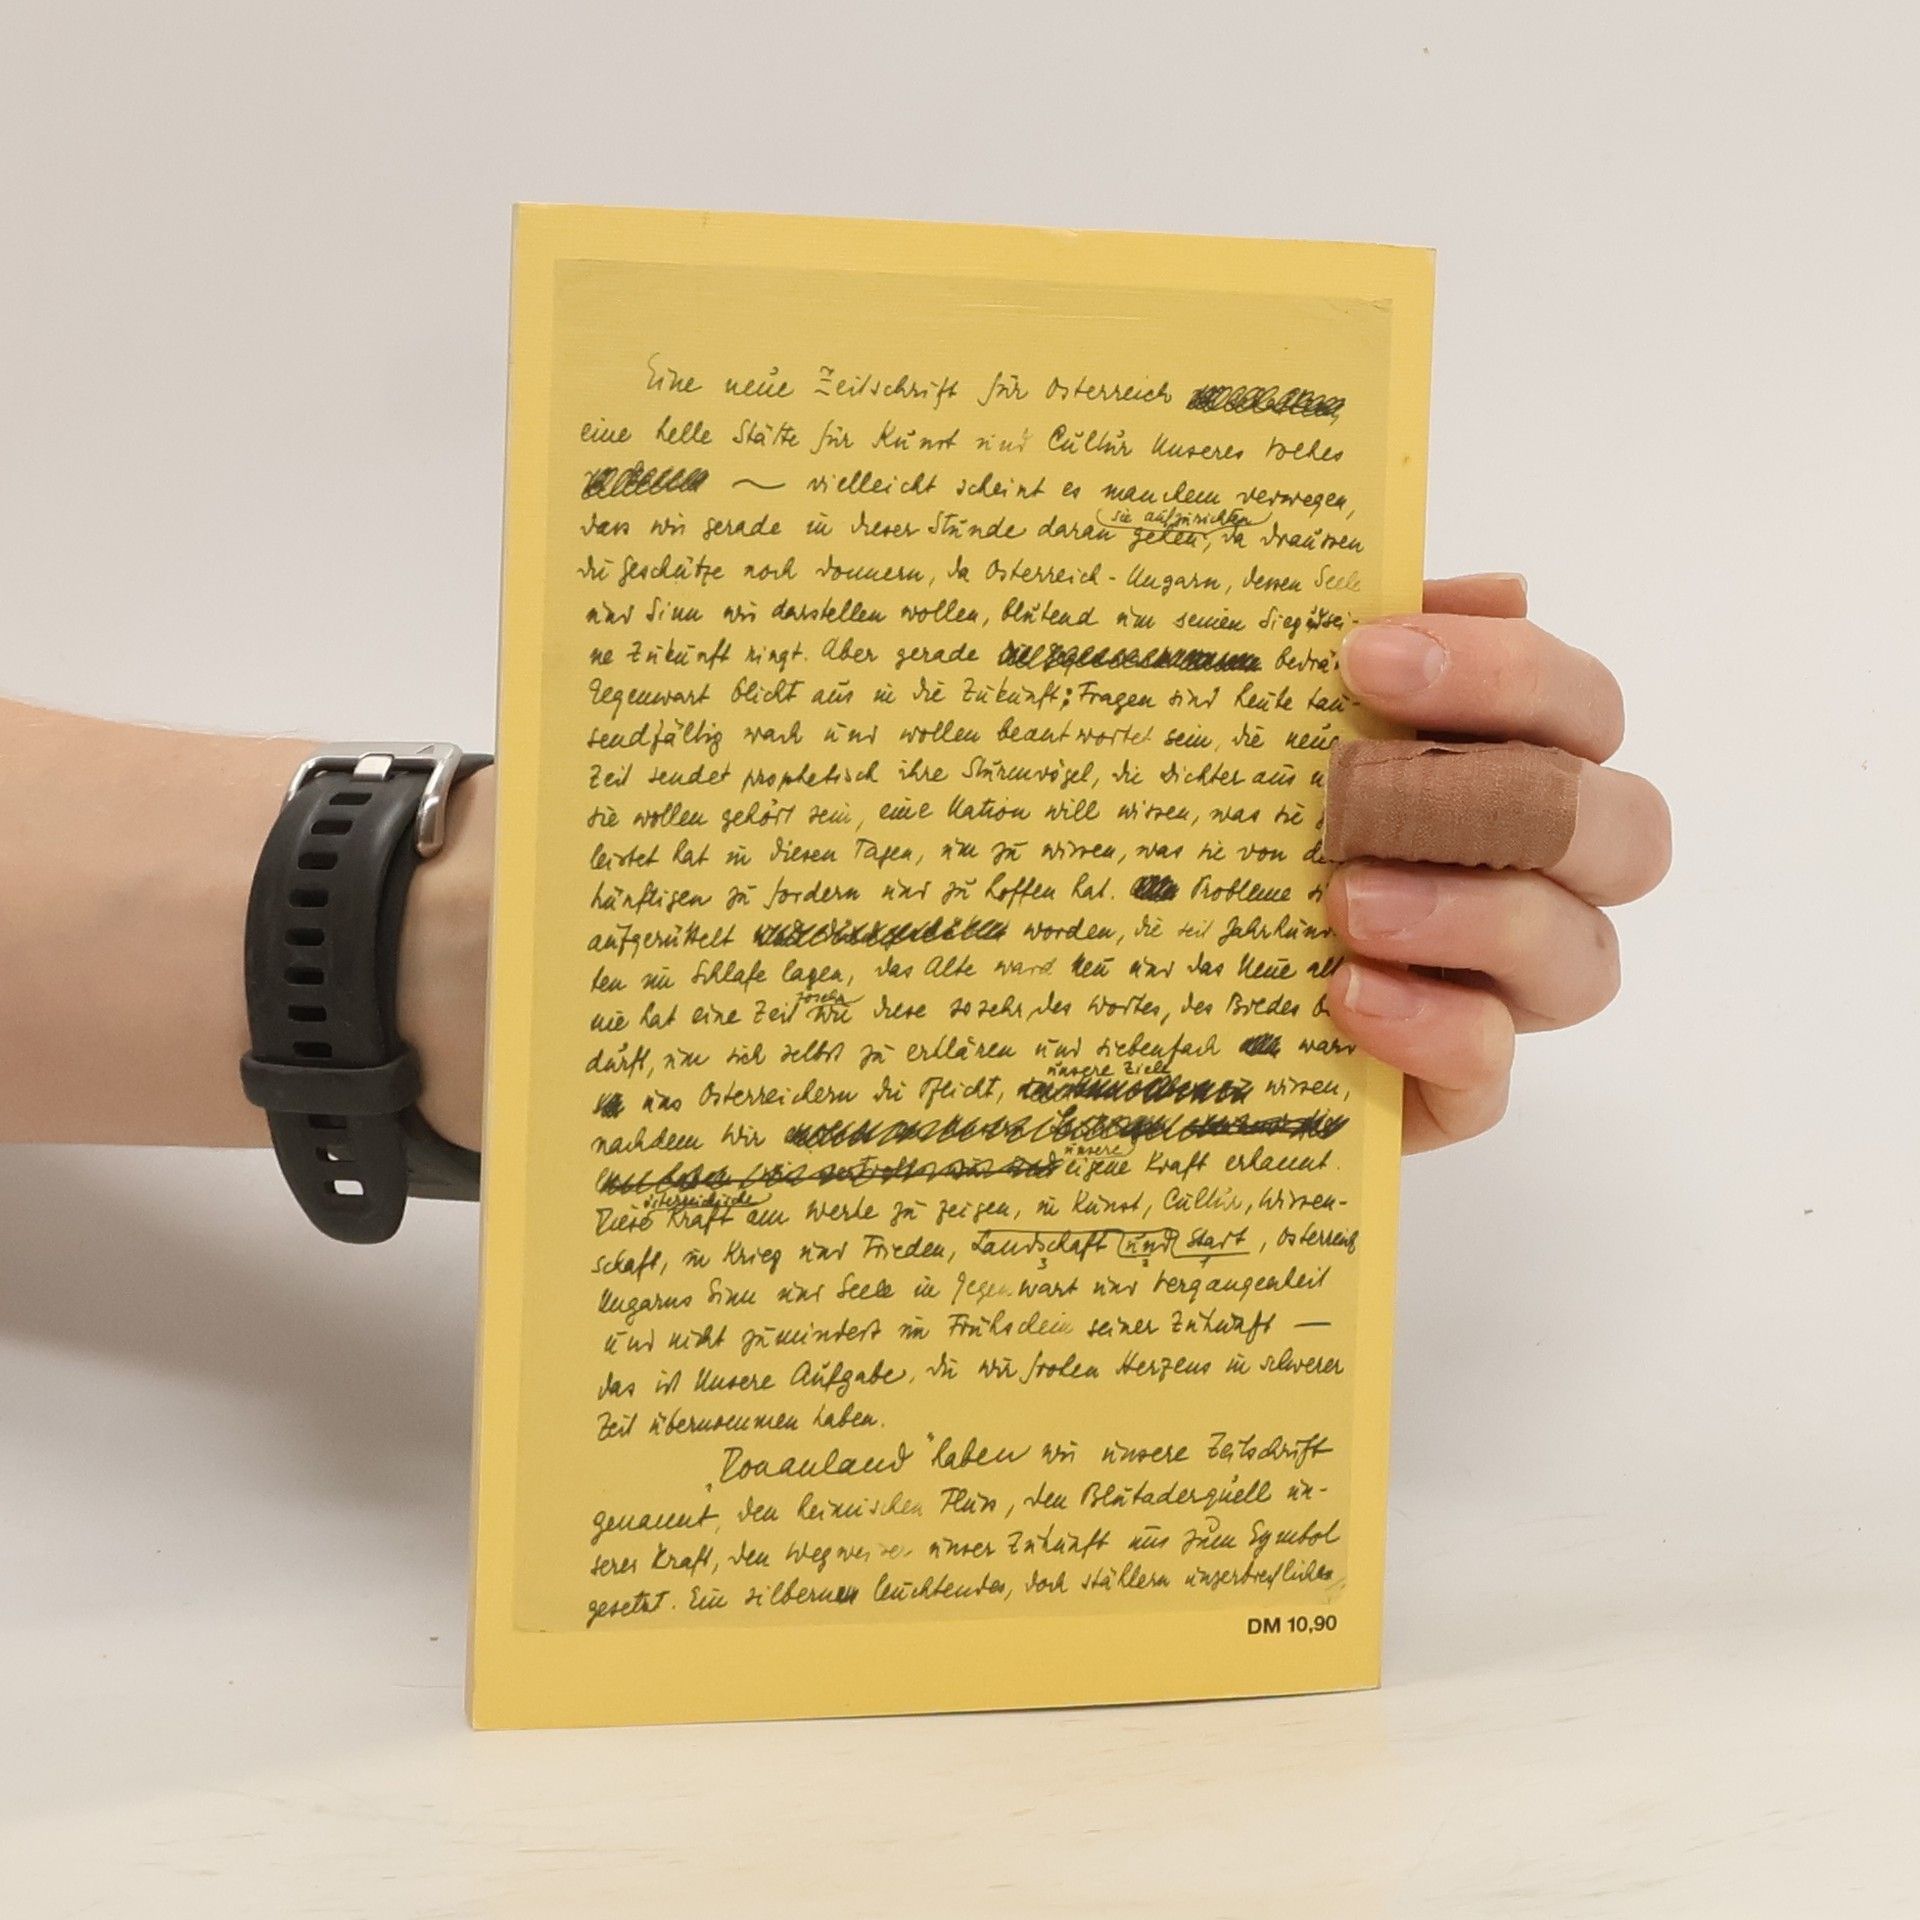 Eine neue Zeitschrift für Österreich
eine helle Stätte für Kunst und Cultur Unseres Volkes
— vielleicht scheint es manchem verwegen,
sie aufzurichten
dass wir gerade in dieser Stunde daran gehen, da draussen
die Geschütze noch donnern, da Österreich-Ungarn, dessen Seele
und Sinn wir darstellen wollen, blutend um seinen Sieg und sei-
ne Zukunft ringt. Aber gerade
Gegenwart blickt aus in die Zukunft; Fragen sind heute tau-
sendfältig wach und wollen beantwortet sein, die neue
Zeit sendet prophetisch ihre Sturmvögel, die Dichter aus
sie wollen gehört sein, eine Nation will wissen, was sie
leistet hat in diesen Tagen, um zu wissen, was sie von
künftigen zu fordern und zu hoffen hat. Probleme
aufgerüttelt worden, die seit Jahrhun
ten im Schlafe lagen, das Alte ward Neu und das Neue alt
nie hat eine Zeit wie diese so sehr des Wortes, des Bildes
durft, um sich selbst zu erklären und siebenfach ward
unsere Ziele
uns Österreichern die Pflicht, wissen,
nachdem Wir
unsere
eigene Kraft erkannt.
österreichische
Diese Kraft am Werke zu zeigen, in Kunst, Cultur, Wissen-
schaft, in Krieg und Frieden, Landschaft und Stadt, Österreich
3 2 1
Ungarns Sinn und Seele in Gegenwart und Vergangenheit
und nicht zumindest im Frühschein seiner Zukunft —
das ist Unsere Aufgabe, die wir frohen Herzens in schwerer
Zeit übernommen haben.
„Donauland" haben wir unsere Zeitschrift
genannt, den heimischen Fluss, den Blutaderquell un-
serer Kraft, den Wegweiser unser Zukunft uns zum Symbol
gesetzt. Ein silbern leuchtendes, doch stählern unzerbrechliches
DM 10,90